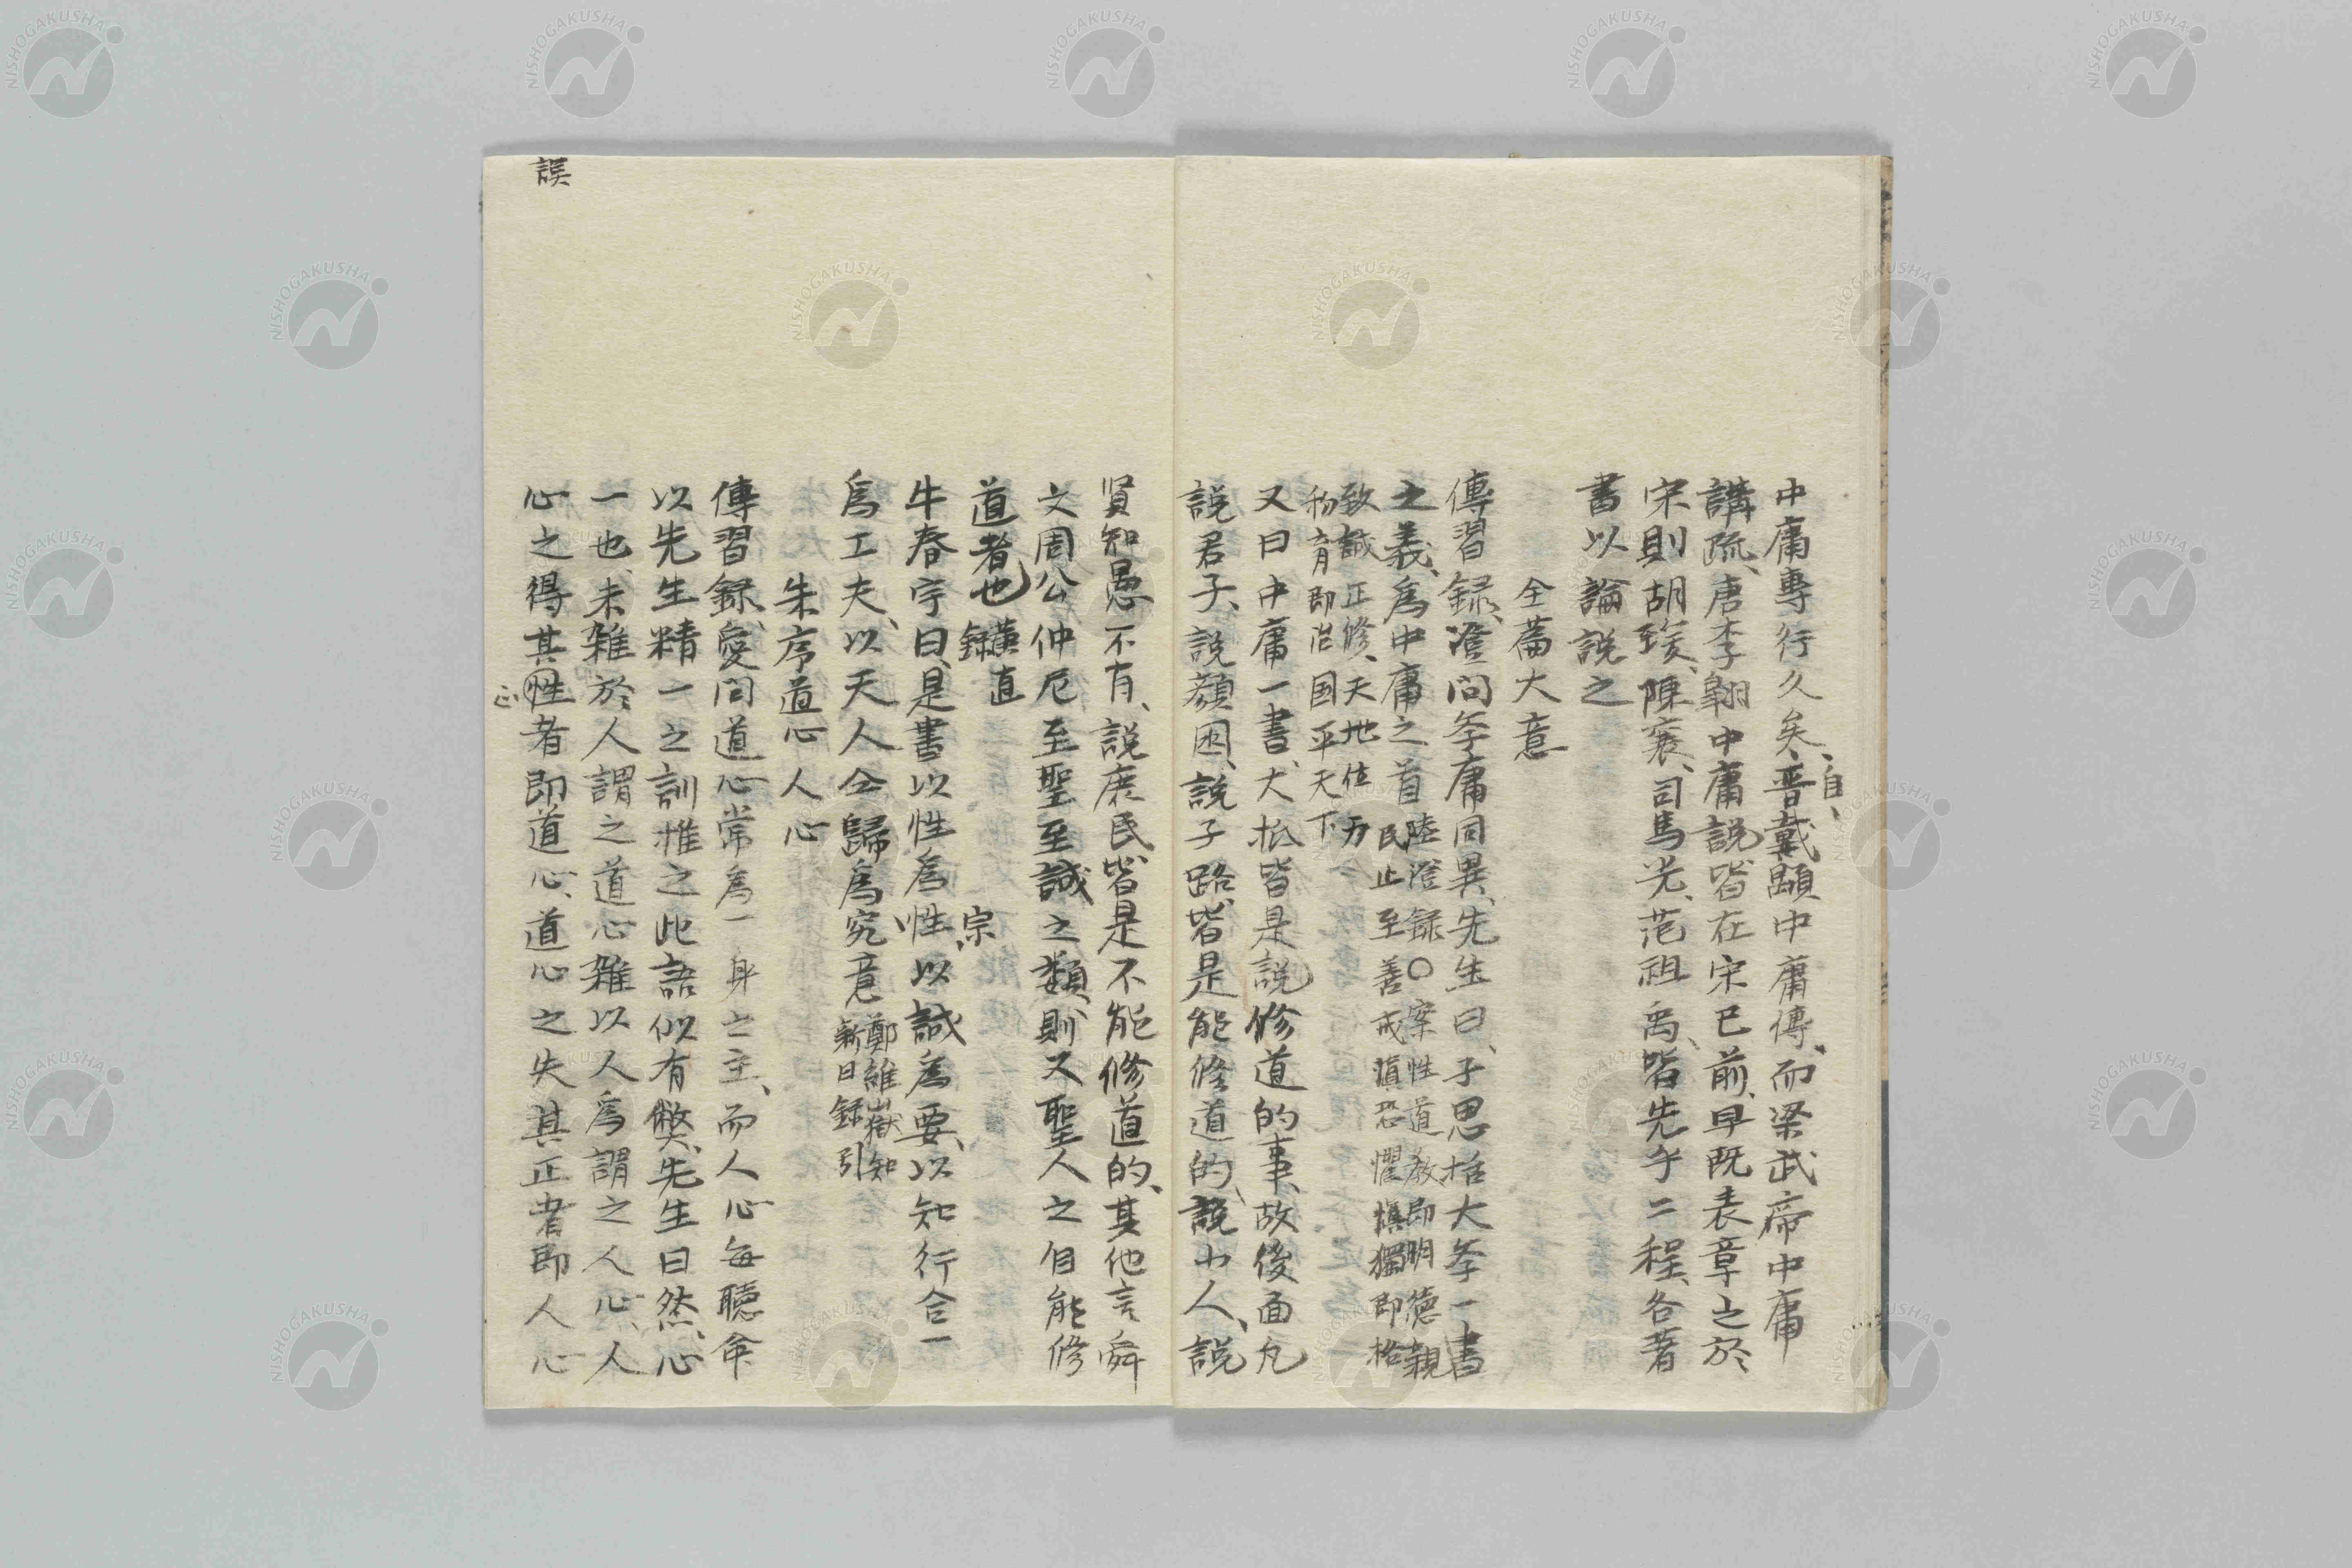 中庸專行久矣、自、晋戴顒中庸傳、而梁武帝中庸
講疏、唐李翺中庸説皆在宋已前、早既表章之於
宋則胡瑗、陳襄、司馬光、范祖禹、皆先乎二程、各著
書以論説之
全篇大意
傳習録、澄問斈庸同異、先生曰、子思括大斈一書
之義、爲中庸之首 陸澄録〇案性道教即明德親
民止至善戒慎恐懼慎獨即格
致誠正修、天地位万
物育即治国平天下
又曰中庸一書、大抵皆是説修道的事、故後面凡
説君子、説顔囬、説子路、皆是能修道的、説小人、説
賢知愚不肖、説庶民、皆是不能修道的、其他言舜
文周公仲尼至聖至誠之類、則又聖人之自能修
道者也 黄直
録
牛春宇曰、是書以性爲性、宗、以誠爲要、以知行合一
爲工夫、以天人仝歸爲究意 鄭維嶽知
新日録引
朱序道心人心
傳習録、愛問道心常爲一身之主、而人心每聽命
以先生精一之訓推之此語似有弊、先生曰然、心
一也、未雜於人謂之道心雜以人爲謂之人心、人
心之得其性者即道心、道心之失其正者即人心
正
誤
NISHOGAKUSHA